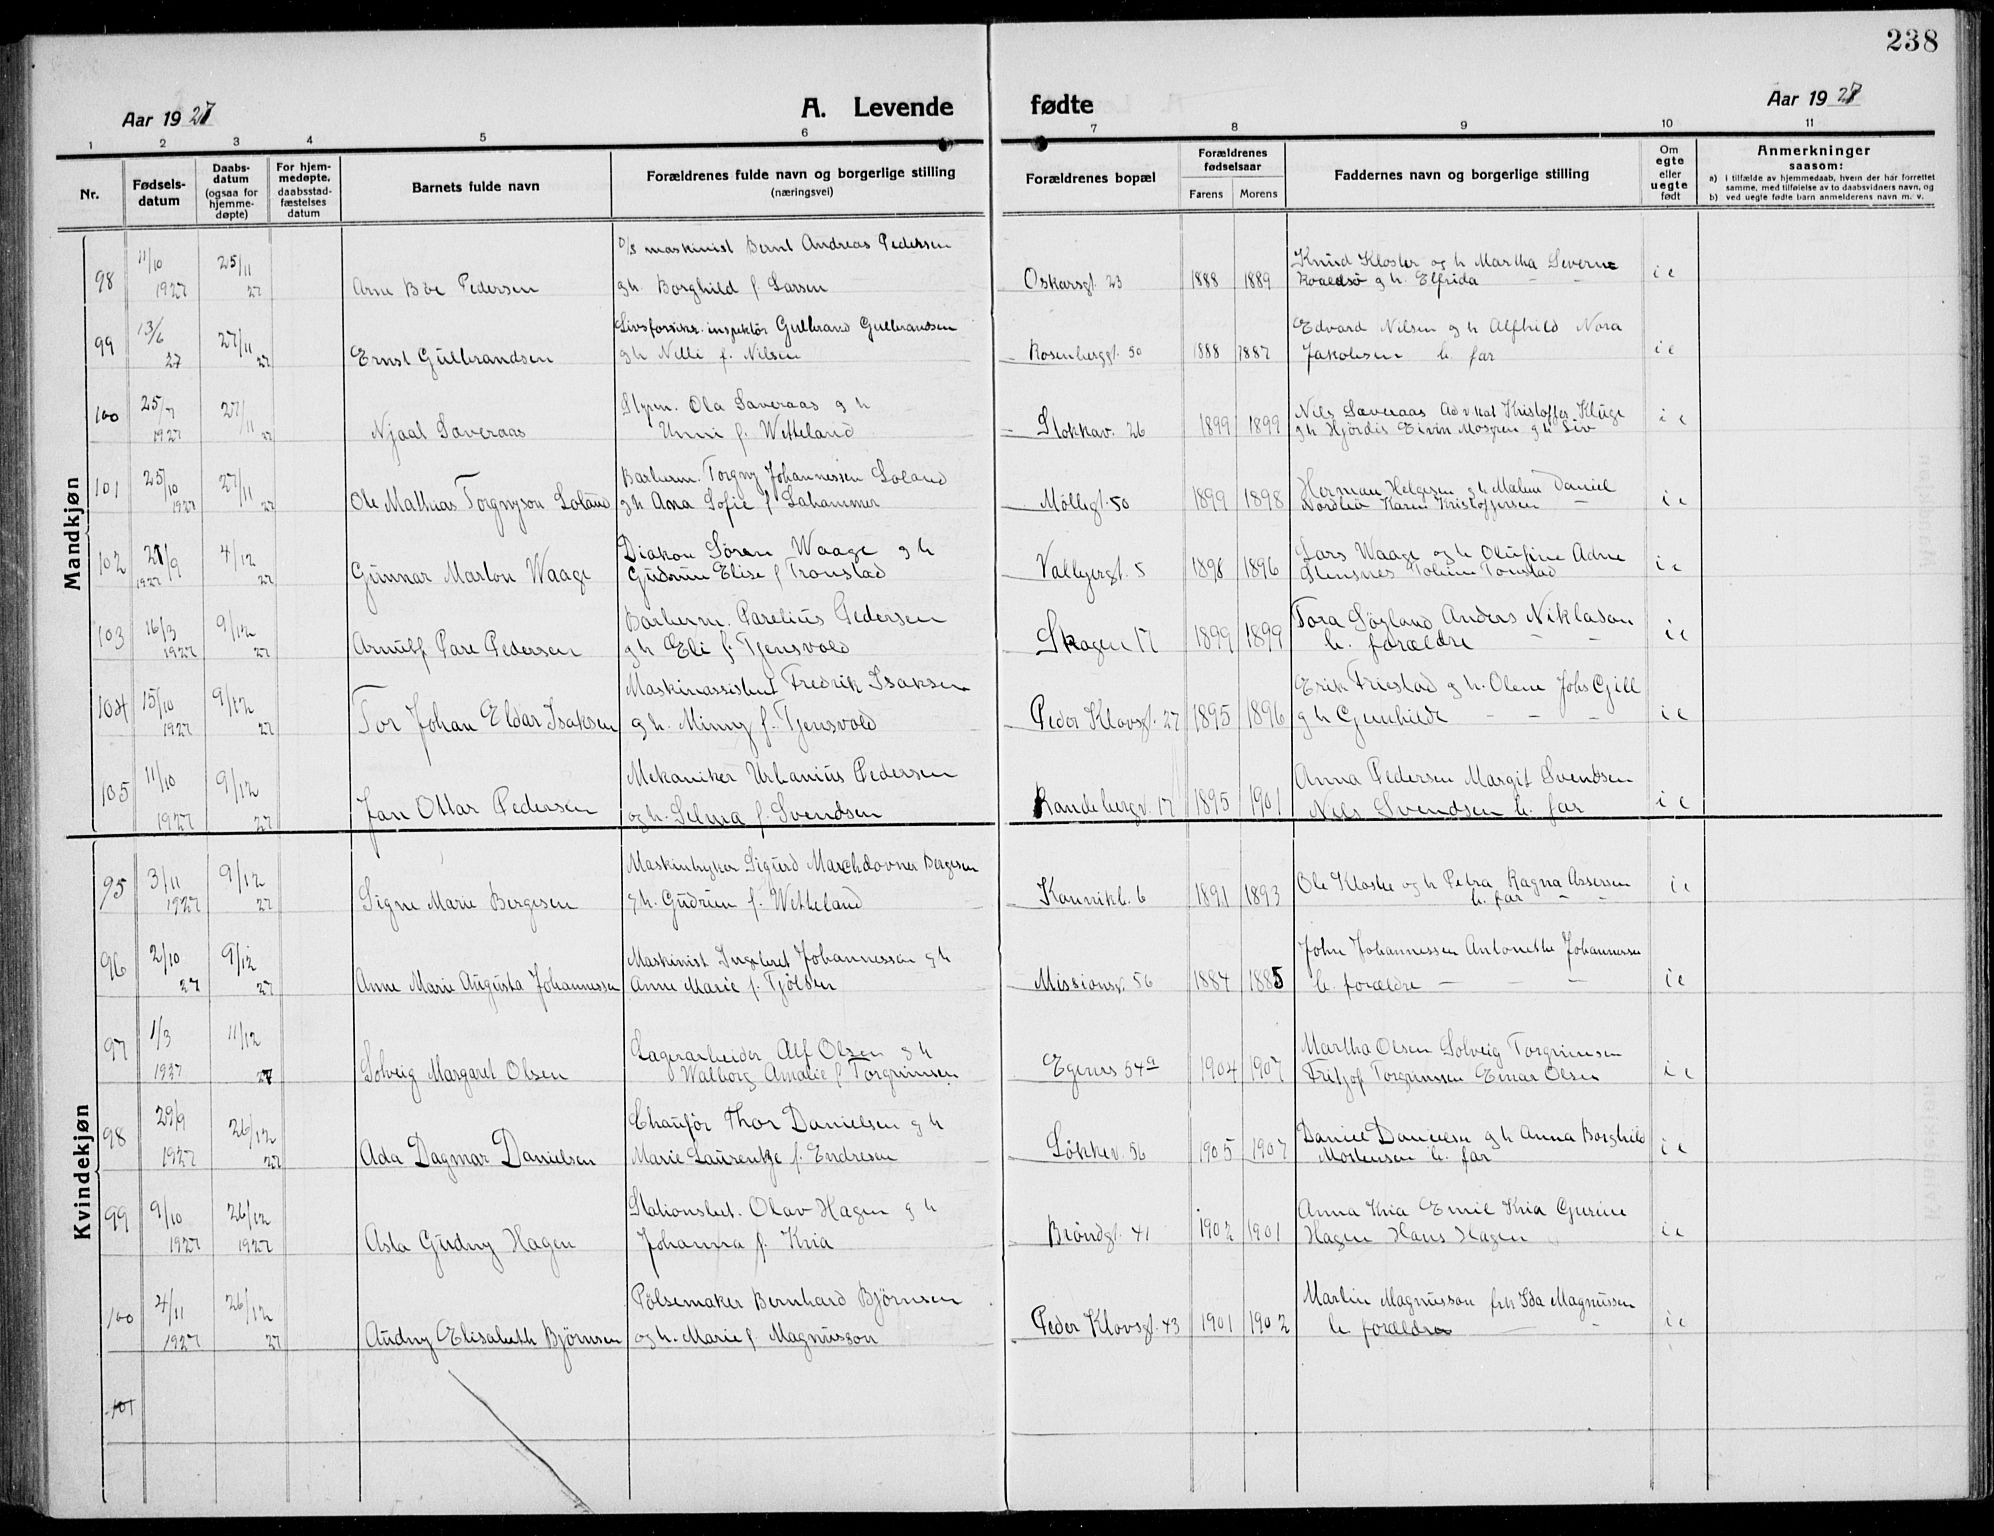 238
Aar 1927 A. Levende fødte Aar 1927
1 2 3 4 5 6 7 8 9 10 11
Nr.
Fødsels-
datum
Daabs-
datum
(ogsaa for
hjemme-
døpte)
For hjem-
medøpte,
daabsstad-
fæstelses
datum
Barnets fulde navn
Forældrenes fulde navn og borgerlige stilling
(næringsvei)
Forældrenes bopæl
Forældrenes
fødselsaar
Farens Morens
Faddernes navn og borgerlige stilling
Om
egte
eller
uegte
født
Anmerkninger
saasom:
a) i tilfælde av hjemmedaab, hvem der har forrettet
samme, med tilføielse av to daabsvidners navn, og
b) ved uegte fødte barn anmelderens navn m. v.
Mandkjøn
98 11/10 1927 25/11 27 Arne Böe Pedersen
D/S maskinist Bernt Andreas Pedersen
gh. Borghild f. Larsen
Oskarsgt. 23 1888 1889
Knud Kloster og h Martha Severine
g h. Elfrida - - i e
99 13/6 27 27/11 27 Ernst Gulbrandsen
Livsforsikr. inspektör Gulbrand Gulbrandsen
gh Nelli f. Nilsen
Rosenberggt. 50 1888 1887
Edvard Nilsen g h Alfhild Nora
Jakobsen b. far i e
100 25/7 1927 27/11 27 Njaal Saveraas
Styrm. Ola Saveraas g h
Unni f. Wetteland
Stokkav. 26 1899 1899
Nils Saveraas Advkat Kristoffer Kluge
gh Hjördis Eivin Mosgren g h Liv i e
101 25/10 1927 27/11 27 Ole Mathias Torgnyson Soland
Barberm. Torgny Johannessen Soland
gh Ana Sofie f Lahammer
Møllegt. 50 1899 1898
Herman Helgesen gh Malun Daniel
Nordbö Karen Kristoffersen - i e
102 21/9 1927 4/12 27 Gunnar Marton Waage
Diakon Sören Waage g h
Gudrun Elise f Tronstad
Valbjergt. 5 1898 1896
Lars Waage og h Olufine Adne
Stensnes Toline Tonstad i e
103 16/3 1927 9/12 27 Arnulf Pare Pedersen
Barberm. Parelius Pedersen
gh Eli f. Tjensvold
Skagen 17 1899 1899
Tora Søyland Anders Niklason
b. forældre - - i e
104 15/10 1927 9/12 27 Tor Johan Eldar Isaksen
Maskinassistent Fredrik Isaksen
gh. Minny f. Tjensvold
Peder Klowsgt. 27 1895 1896
Erik Friestad g h. Olene Johs Gjill
g h Gunhilde - - - i e
105 11/10 1927 9/12 27 Jan Ottar Pedersen
Mekaniker Urbanius Pedersen
og h. Selma f. Svendsen
Randebergv. 17 1895 1901
Anna Pedersen Margit Svendsen
Nils Svendsen b. far i e
Kvindekjøn
95 3/11 1927 9/12 27 Signe Marie Bergesen
Maskintryker Sigurd Bergesen
gh. Gudrun f. Wetteland
Kannikb. 6 1891 1893
Ole Kloster og h Petra Ragna Assersen
b. far - - i e
96 2/10 27 9/12 27 Anne Marie Augusta Johannessen
Maskinist Ingebret Johannessen gh
Anne Marie f. Tjölsen
Missionsv. 56 1884 1885
John Johannessen Antonette Johannessen
b. forældre - - - i e
97 1/3 1927 11/12 27 Solveig Margaret Olsen
Lagerarbeider Alf Olsen g h
Walborg Amalie f Torgrimsen
Egenes 54a 1904 1907
Martha Olsen Solveig Torgrimsen
Fritjof Torgrimssen Einar Olsen i e
98 29/9 1927 26/12 27 Ada Dagmar Danielsen
Chaufør Thor Danielsen g h
Marie Laurentze f. Endresen
Løkkev. 56 1905 1907
Daniel Danielsen g h Anna Borghild
Mortensen b. far i e
99 9/10 1927 26/12 1927 Asta Gudny Hagen
Stationsbet. Olav Hagen g h
Johanna f. Kria
Bröndgt. 41 1902 1901
Anna Kria Emil Kria Gurine
Hagen Hans Hagen i e
100 4/11 1927 26/12 27 Audny Elisabeth Bjørnsen
Pølsemaker Bernhard Bjørnsen
og h. Marie f Magnusson
Peder Klowsgt. 43 1901 1902
Martin Magnusson frk Ida Magnussen
b. forældre - - i e
101